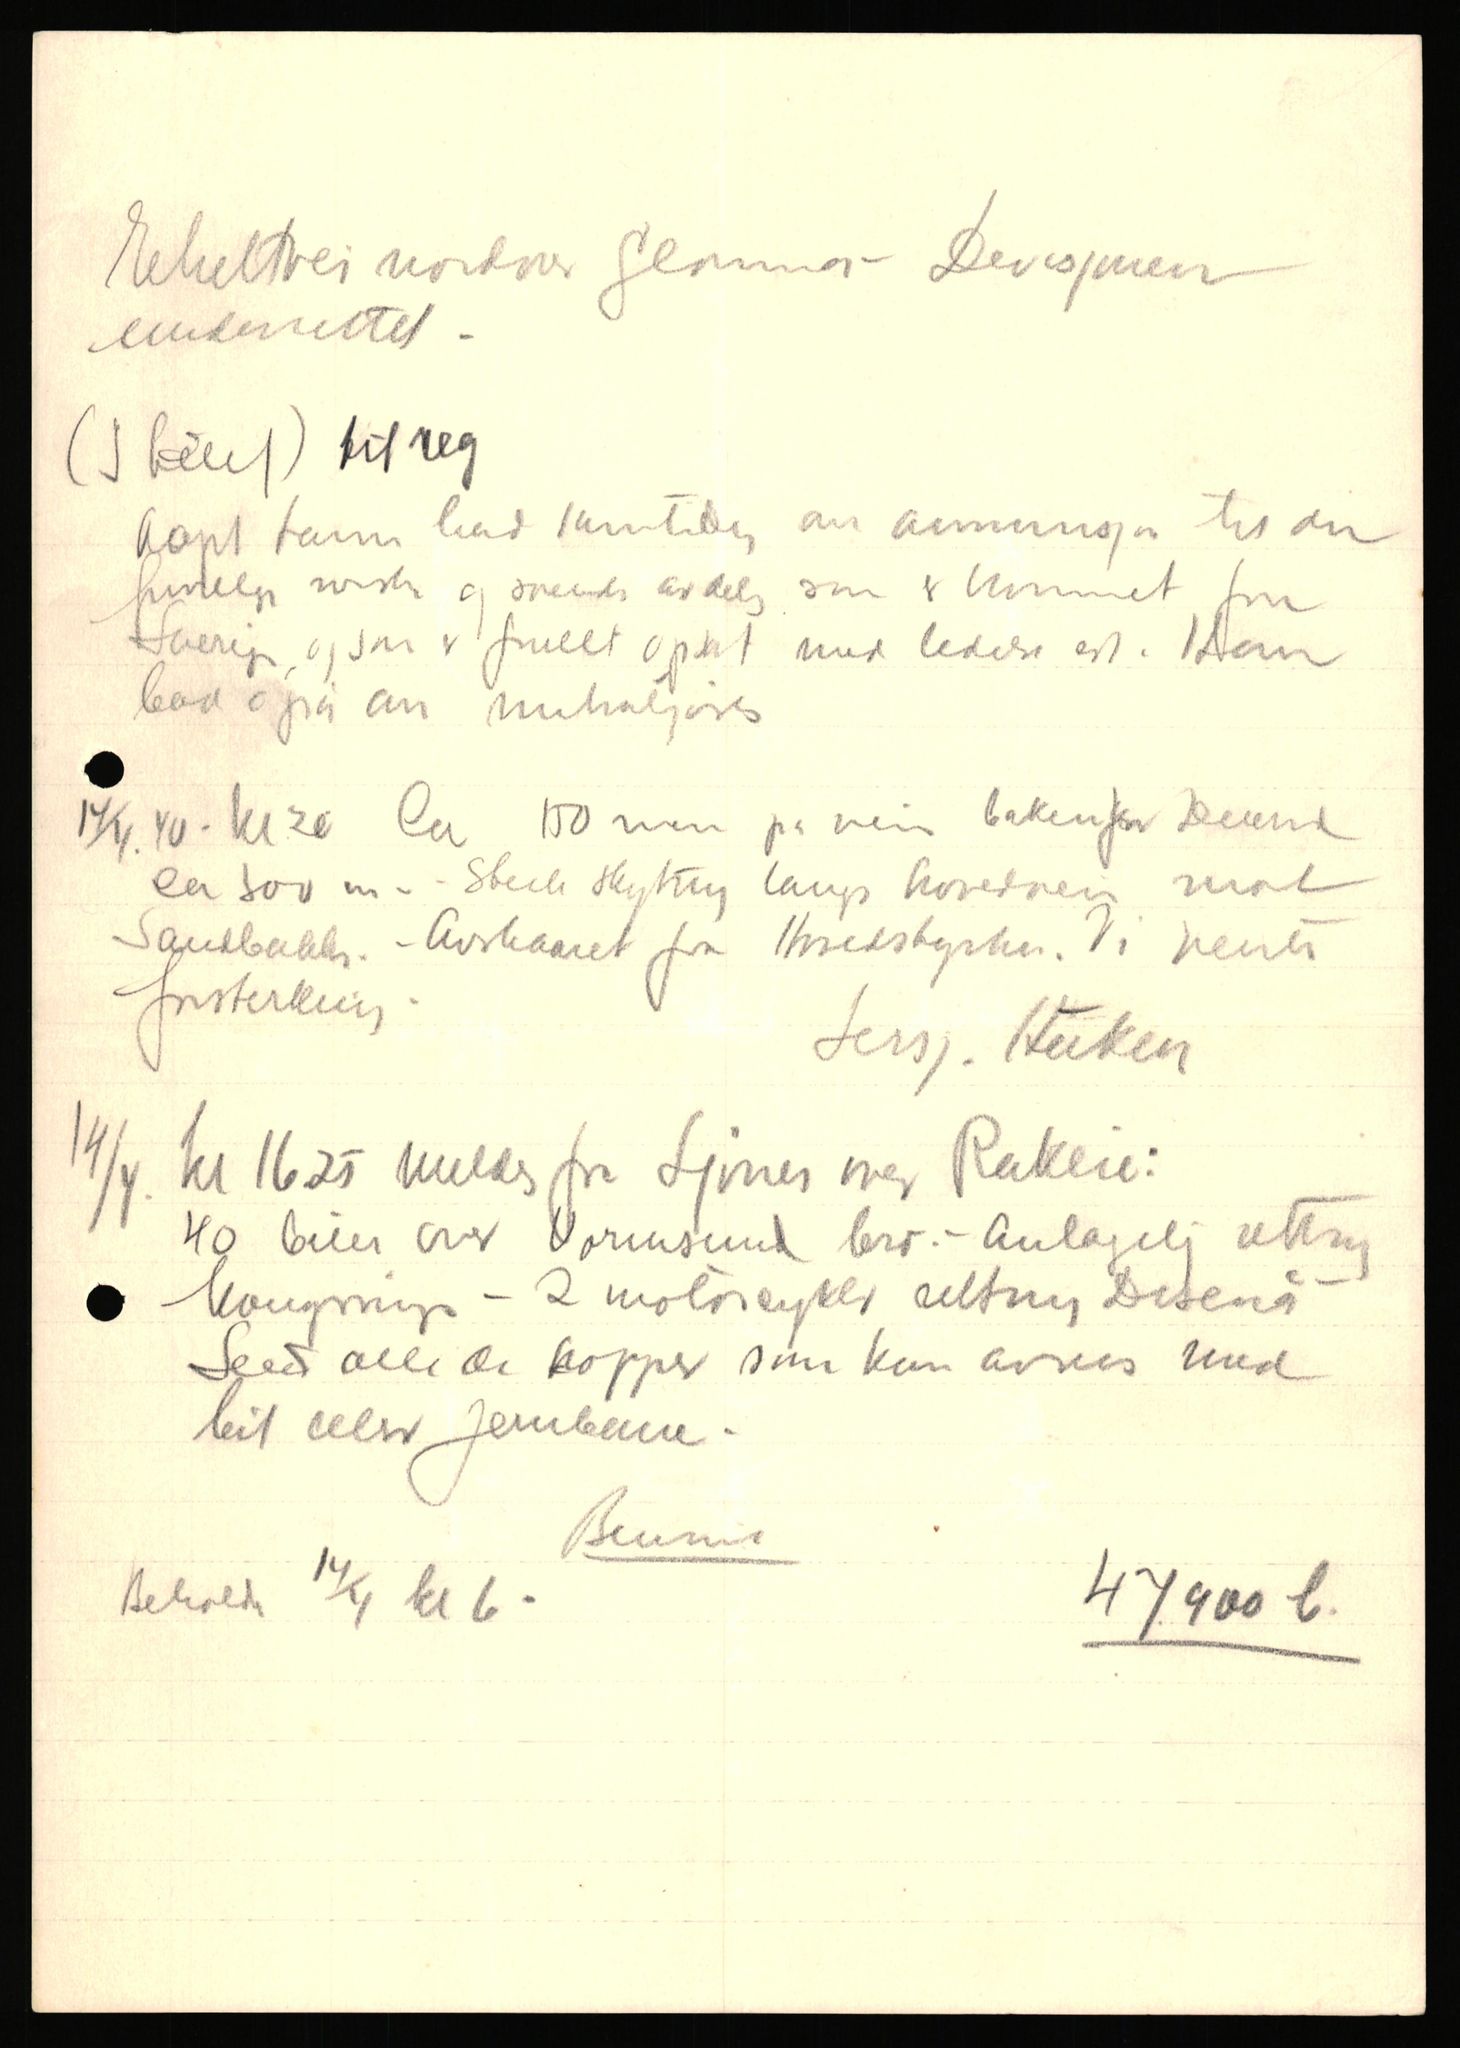 nordover Glomma - 
underrettet -
(I bilen) til reg
Kapt bad samtidig om ammunisjon til den
frivillige norske og svenske avdeling som er kommet fra
Sverige, og som er fullt opsatt med ledelse etc. Han
bad også om mitraljøser
14/4.40. kl 20 Ca 150 mann på vein bakenfor
ca 300 m - Sterk skytning langs hovedvein mot
Sandbakken. - Avskaaret fra Hovedstyrken. Vi venter
forsterkning.
Sersj.
14/4. kl 1625 meldes fra over
40 biler over Vormsund bro. - Antagelig retning
Kongsvinger - 2 motorcykler retning Disenå
Send alle de tropper som kan avsees med
bil eller jernbane -
14/4 kl 6 -
47.900 b.